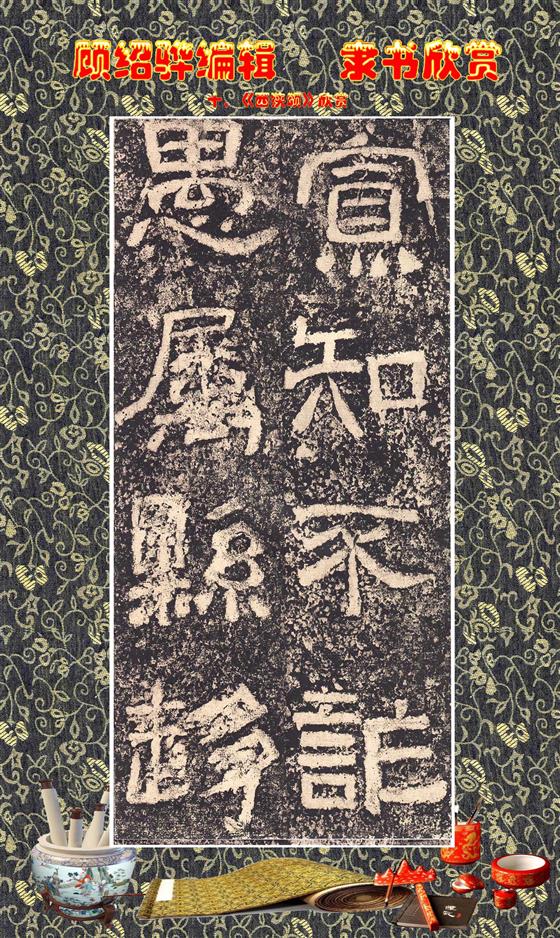 顾绍骅编辑 隶书欣赏
十、《西狭颂》欣赏
寡知不詐
愚屬縣趍